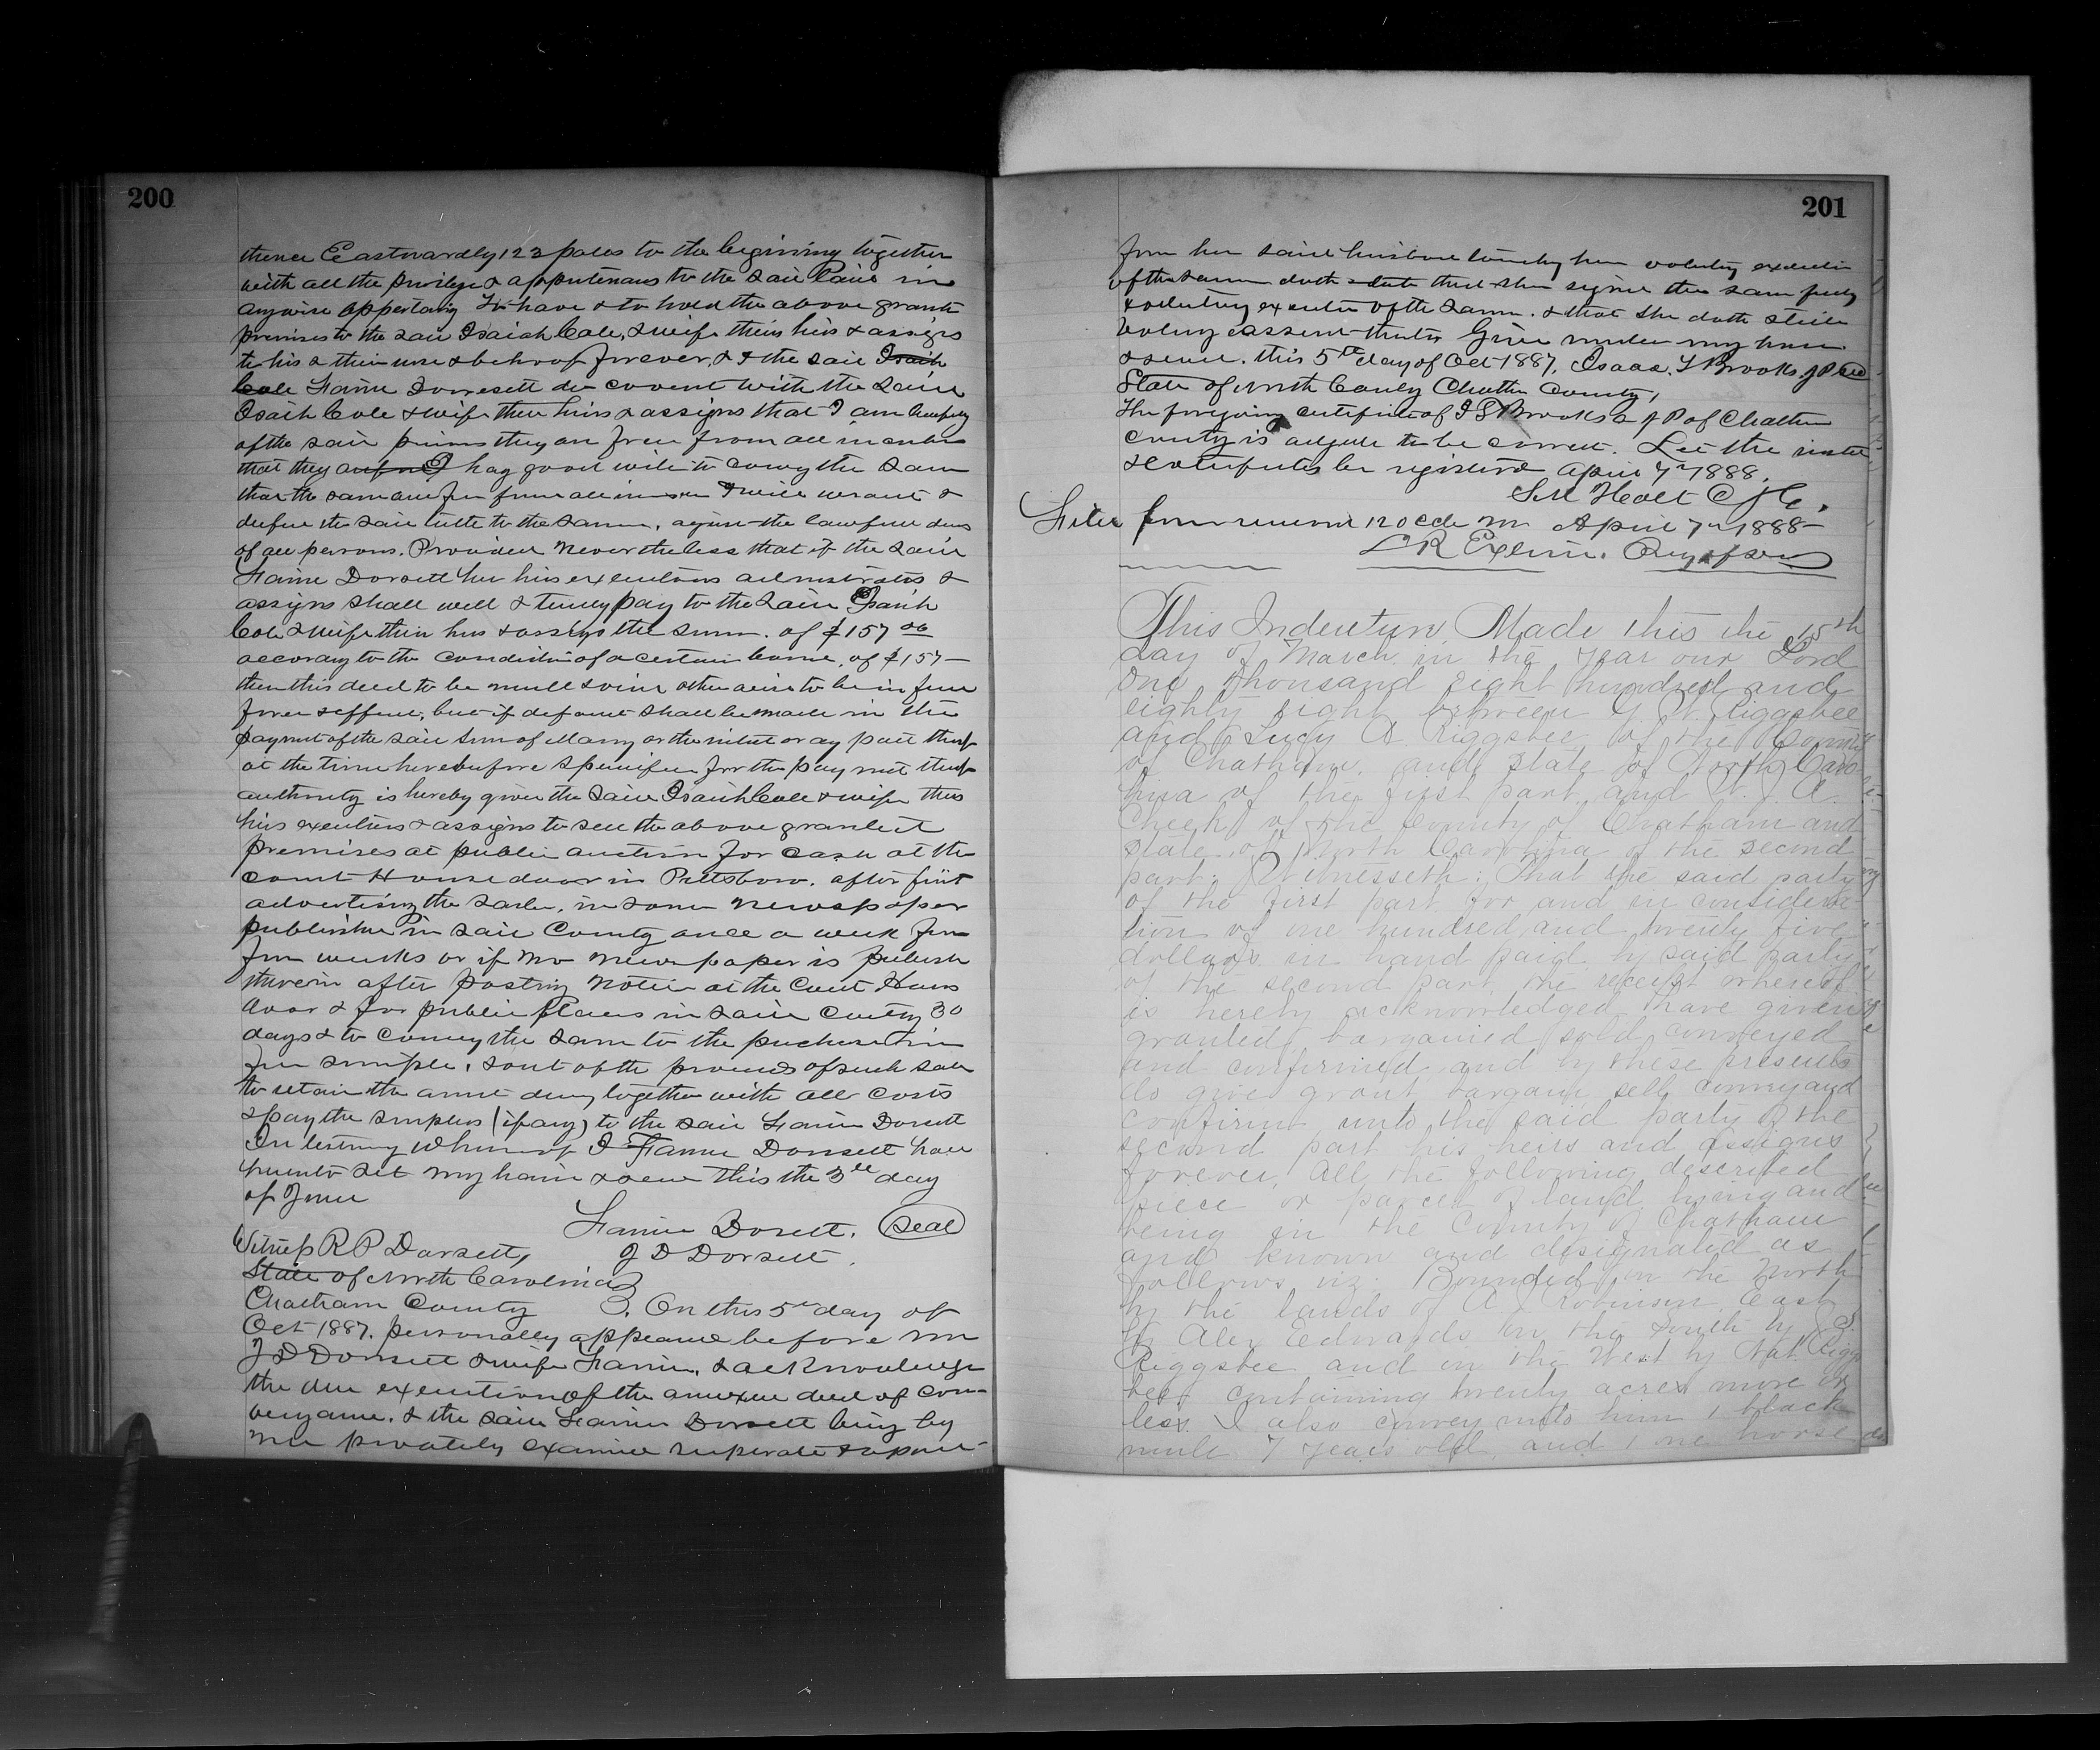 200
thence Eastwardly 123 poles to the begining together
with all the privilege & appurtenans to the said land in
anywise appertaing To have & to hold the above grante
premises to the said Isaiah Cole, & wife their heirs & assigns
to his & their use & behoof forever, & I the said Isaih
Cole Fannie Dorrsett do covent with the said
Isaih Cole & wife their heirs & assigns that I am
of the said they are free from all
that they I hav good to convy the sam
that the same are free from all I will warant &
defen the said title to the same, against the lawful
of all persons. Provided nevertheless that if the said
Fannie Dorsett her heirs executors administrators &
assigns shall well & truly pay to the said Isaih
Cole & wife their heirs & assigns the sum. of $157 00
accordng to the condition of a certain bond, of $157 —
then this deed to be null & void otherwise to be in full
force & effect, but if default shall be made in the
payment of the said sum of money or the intrst or any part therof
at the time herebefore specified for the payment therof
authority is hereby given the said Isaiih Cole & wife their
heirs executors & assigns to sell the above granted
premises at public auction for cash at the
court House door in Pittsboro. after first
advertising the sale, in some newspaper
published in said County once a week for
four weeks or if no newspaper is publish
therein after posting notice at the Court House
door & four public places in said County 30
days & to convey the same to the purchaser in
fee simple, & out of the proceeds of such sale
to retain the amt due, together with all costs
& pay the surplus (if any) to the said Fannie Dorsett
In testimony whereof I Fannie Dorsett have
hereunto set my hand & seal this the 3rd day
of June
Fannie Dorsett. (Seal)
Witness R P Dorsett, J D Dorsett.
State of North Carolina
Chatham County }. On this 5th day of
Oct 1887. personally appeared before me
J D Dorsett & wife Fannie, & acknowledge
the due execution of the annexed deed of con-
veyance. & the said Fannie Dorsett being by
me privately examined seperate & apart
201
from her said husband touching her voluntry execution
of the same doth state that she signed the same freely
voluntry execution of the same. & that she doth still
volury assent thereto. Given under my hand
& seal. this 5th day of Oct 1887. Isaac. T Brooks JP
State of North Caroly Chatham County,
The foregoing certificate of I T Brooks a J P of Chatham
county is adjudged to be correct. Let the
& certificates be registered April 7th 1888.
Filed for 12 Ock M April 7th 1888—
L R Exline.
This Indenture, Made this the 15th
day of March in the year our Lord
one thousand eight hundred and
eighty eight between Riggsbee
and Lucy A Riggsbee, of the County
of Chatham. and State of North Caro-
lina of the first part and A.
Cheek of the County of Chatham and
State of North Carolina of the second
part: Witnesseth: That the said party
of the first part for and in considera-
tion of one hundred and twenty five
dollars in hand paid by said party
of the second part, the receipt whereof
is hereby acknowledged have given
granted, bargained sold, conveyed
and confirmed and by these presents
do give grant bargain sell convey and
confirm unto the said party of the
second part his heirs and assigns
forever. All the following described
piece or parcel of land lying and
being in the County of Chatham
and known and designated as
follows viz: Bounded on the North
by the lands of A J Robinson, East
by Alex Edwards on the South by
Riggsbee and on the West by Nat Rigg
bee, containing twenty acres more or
less. I also convey unto him 1 black
mule 7 years old, and 1 one horse